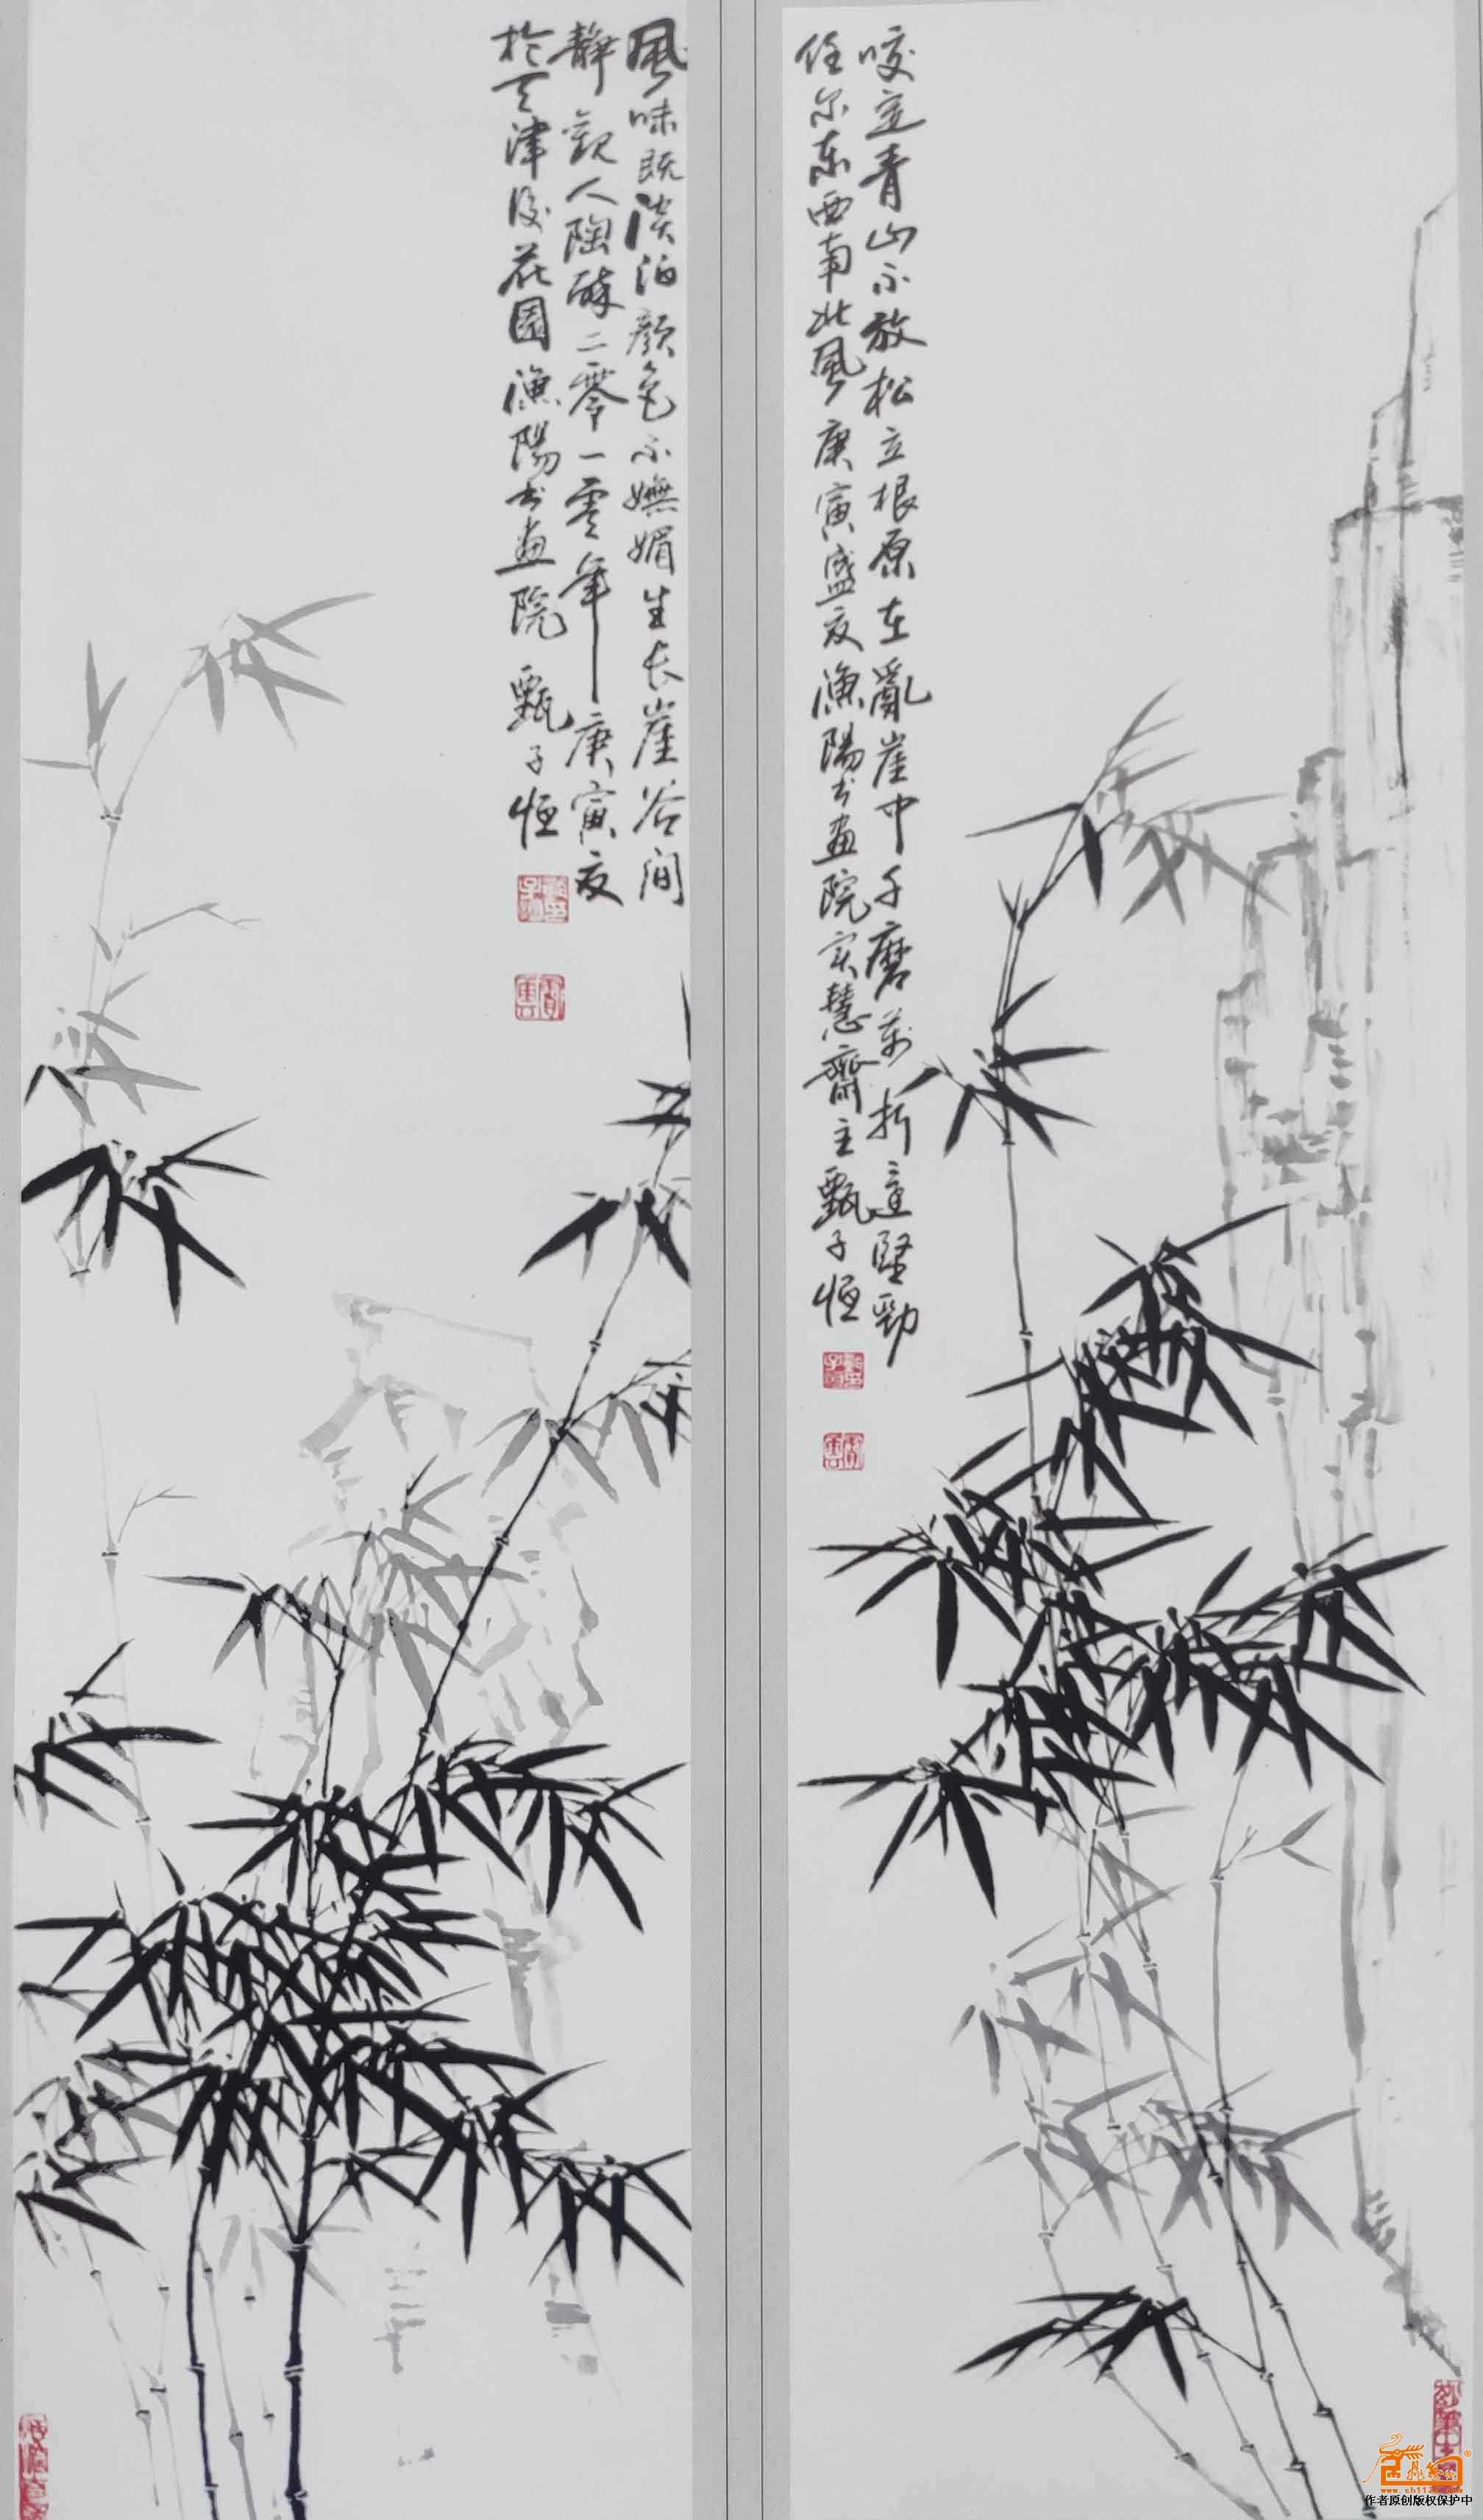 咬定青山不放松立根原在亂崖中千磨萬折還堅勁
任尔东西南北風庚寅盛夏漁陽书畫院实慧齋主甄子恒
風味既淡泊顏色不嫵媚生长崖谷间
靜觀人陶醉二零一零年庚寅夏
於天津後花園漁陽书畫院甄子恒
作者原创版权保护中